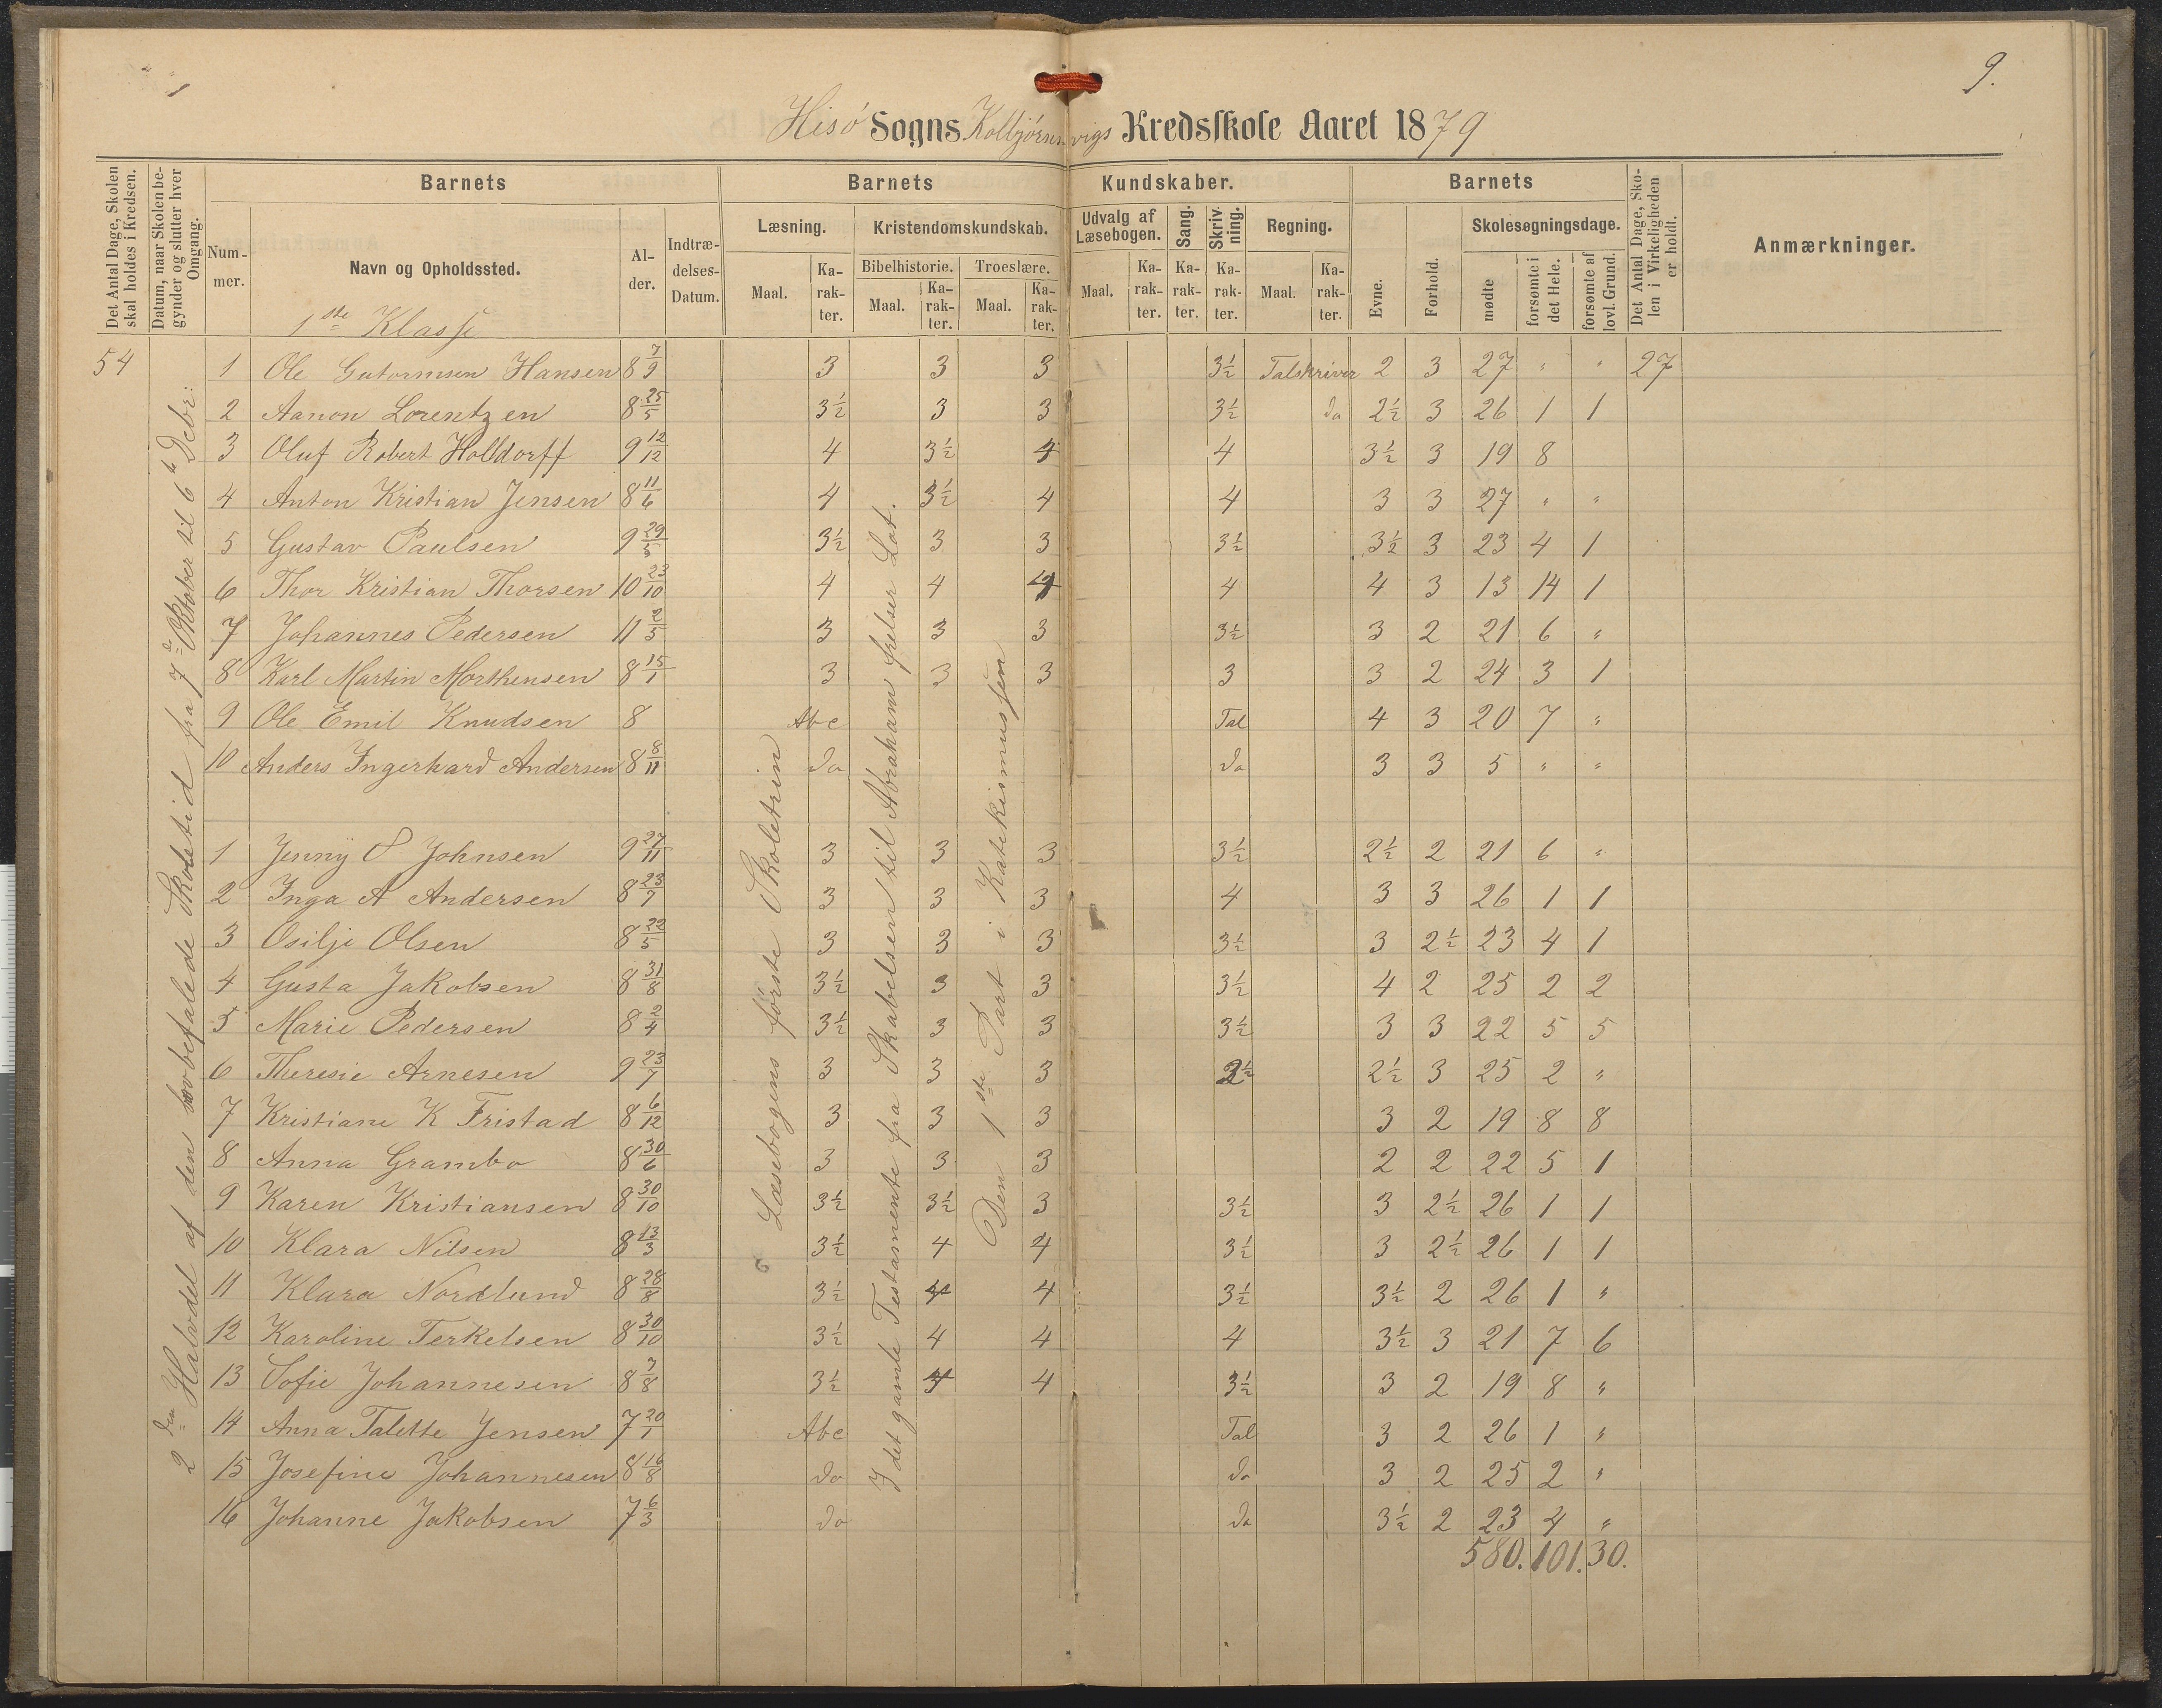 9.
Hisö Sogns Kolbjørnsvigs Kredsskole Aaret 1879
Det Antal Dage, Skolen skal holdes i Kredsen.
Datum, naar Skolen begynder og slutter hver Omgang.
Barnets
Barnets Kundskaber.
Barnets
Det Antal Dage, Skolen i Virkeligheden er holdt.
Anmærkninger.
Nummer.
Navn og Opholdssted.
Alder.
Indtrædelses-Datum.
Læsning.
Kristendomskundskab.
Udvalg af Læsebogen.
Sang.
Skrivning.
Regning.
Evne.
Forhold.
Skolesøgningsdage.
Bibelhistorie.
Troeslære.
Maal.
Karakter.
Maal.
Karakter.
Maal.
Karakter.
Maal.
Karakter.
Karakter.
Karakter.
Maal.
Karakter.
mødte
forsømte i det Hele.
forsømte af lovl. Grund.
1ste Klasse
54
2den Halvdel af den lovbefalede Skoletid fra 7de Oktober til 6te Debr:
Læsebogens förste Skoletrin
I det gamle Testamente fra Skabelsen til Abraham frelser Lot.
Den 1ste Part i Katekismussen
1 Ole Gutormsen Hansen 8 7/9 3 3 3 3½ Talskriver 2 3 27 " " 27
2 Aanon Lorentzen 8 25/5 3½ 3 3 3½ do 2½ 3 26 1 1
3 Oluf Robert Holldorff 9 12/12 4 3½ 4 4 3½ 3 19 8
4 Anton Kristian Jensen 8 11/6 4 3½ 4 4 3 3 27 " "
5 Gustav Paulsen 9 29/5 3½ 3 3 3½ 3½ 3 23 4 1
6 Thor Kristian Thorsen 10 23/10 4 4 4 4 4 3 13 14 1
7 Johannes Pedersen 11 2/5 3 3 3 3½ 3 2 21 6 "
8 Karl Martin Morthensen 8 15/1 3 3 3 3 3 2 24 3 1
9 Ole Emil Knudsen 8 Abc Tal 4 3 20 7 "
10 Anders Ingerhard Andersen 8 8/11 do do 3 3 5 " "
1 Jenny O Johnsen 9 27/11 3 3 3 3½ 2½ 2 21 6 "
2 Inga A Andersen 8 23/7 3 3 3 4 3 3 26 1 1
3 Osilje Olsen 8 22/5 3 3 3 3½ 3 2½ 23 4 1
4 Gusta Jakobsen 8 31/8 3½ 3 3 3½ 4 2 25 2 2
5 Marie Pedersen 8 2/4 3½ 3 3 3½ 3 3 22 5 5
6 Theresie Arnesen 9 23/7 3 3 3 2½ 2½ 3 25 2 "
7 Kristiane K Fristad 8 6/12 3 3 3 3 2 19 8 8
8 Anna Grambo 8 30/6 3 3 3 2 2 22 5 1
9 Karen Kristiansen 8 30/10 3½ 3½ 3 3½ 3 2½ 26 1 1
10 Klara Nilsen 8 13/3 3½ 4 4 3½ 3 2½ 26 1 1
11 Klara Nordlund 8 28/8 3½ 4 4 3½ 3½ 2 26 1 "
12 Karoline Terkelsen 8 30/10 3½ 4 4 4 3½ 3 21 7 6
13 Sofie Johannesen 8 7/8 3½ 4 4 3½ 3 2 19 8 "
14 Anna Talette Jensen 7 20/1 Abc Tal 3 2 26 1 "
15 Josefine Johannesen 8 16/8 do do 3 2 25 2 "
16 Johanne Jakobsen 7 6/3 do do 3½ 2 23 4 "
580. 101. 30.